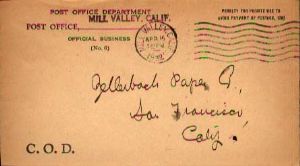 POST OFFICE DEPARTMENT
MILL VALLEY, CALIF.
POST OFFICE,
OFFICIAL BUSINESS
(No. 6)
PENALTY FOR PRIVATE USE TO
AVOID PAYMENT OF POSTAGE, $300
MILL VALLEY
APR 15
Zellerbach Paper Co.
San Francisco
Calif.
C. O. D.